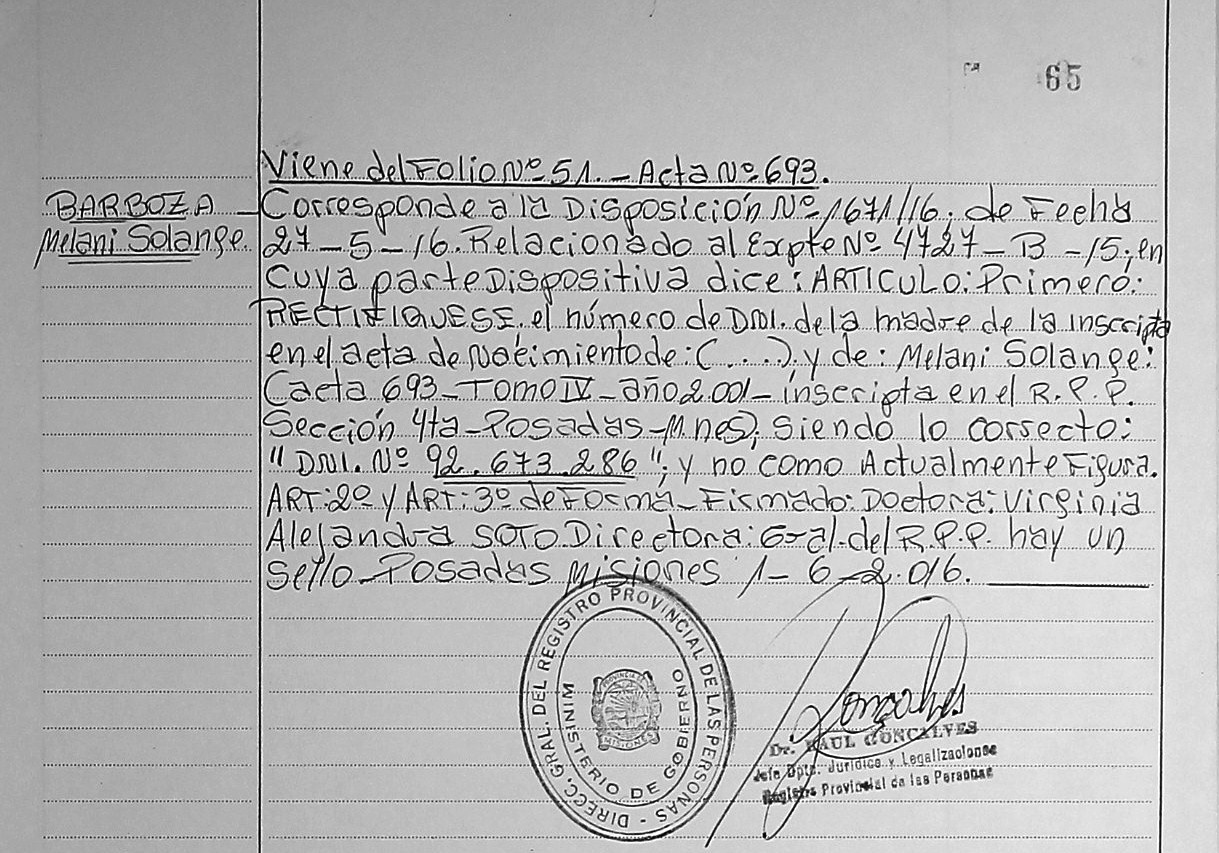 65
Viene del Folio Nº 51. - Acta Nº 693.
BARBOZA
Melani Solange.
Corresponde a la Disposición Nº 1671/16. de Fecha
27-5-16. Relacionado al Expte Nº 4727-B-15; en
Cuya parte Dispositiva dice: ARTICULO: Primero:
RECTIFIQUESE. el número de DNI. de la madre de la inscripta
en el acta de Nacimiento de: (....) y de: Melani Solange:
Cacta 693-Tomo IV-año 2.001-inscripta en el R.P.P.
Sección 4ta-Posadas-Mnes); siendo lo correcto:
"DNI. Nº 92.673.286"; y no como Actualmente Figura.
ART: 2º y ART: 3º de Forma-Firmado: Doctora: Virginia
Alejandra SOTO Directora: Gral. del R.P.P. hay un
sello-Posadas Misiones 1-6-2.016.
DIRECC. GRAL. DEL REGISTRO PROVINCIAL DE LAS PERSONAS -
MINISTERIO DE GOBIERNO
MISIONES
Goncalves
Dr. RAUL GONCALVES
Jefe Dpto. Jurídico y Legalizaciones
Registro Provincial de las Personas